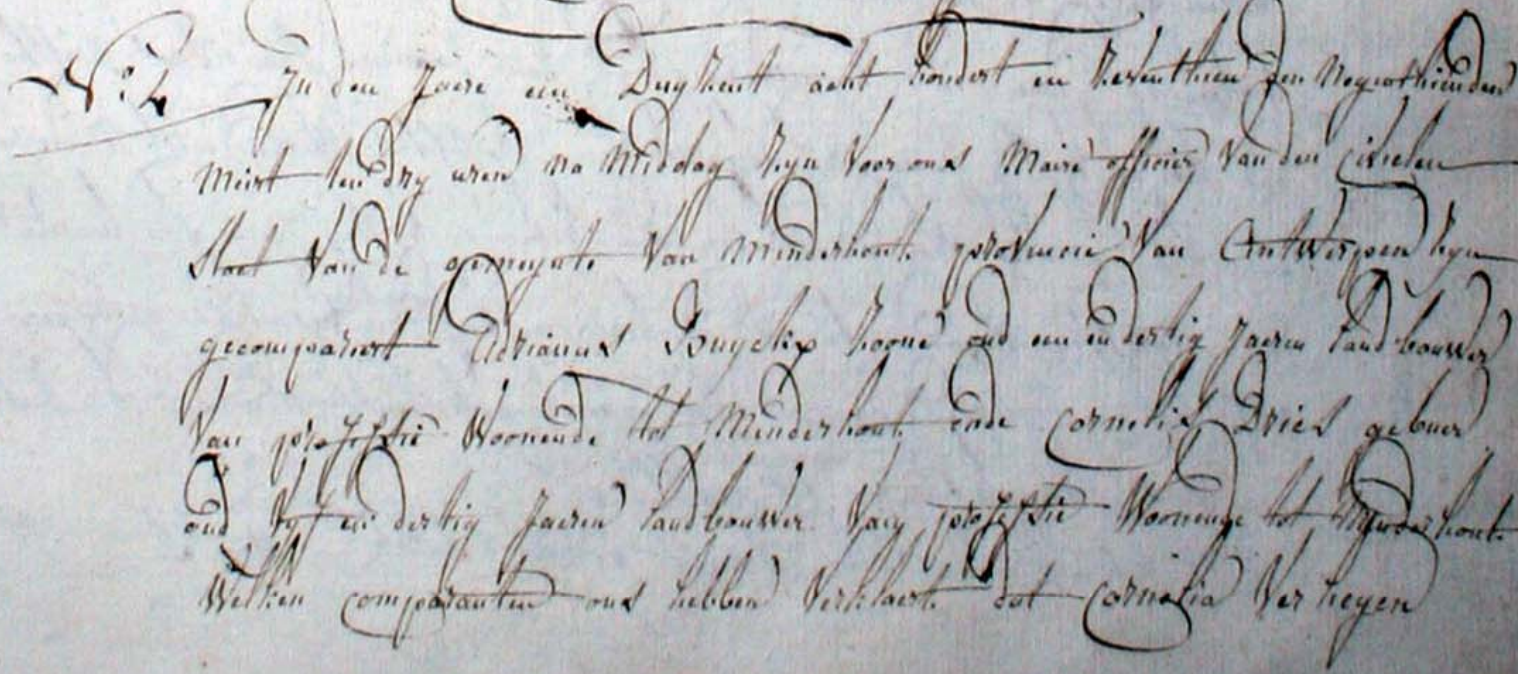 N:o 2 In den Jaere een Duyzent acht hondert en zeventhien den Negenthienden
Meirt ten dry uren na Middag zyn Voor ons Maire officier Van den Civielen
Staet Van de gemeynte Van Minderhout provincie Van Antwerpen zyn
gecompareert Adrianus zoone oud een en dertig Jaeren Landbouwer
Van professie Woonende tot Minderhout ende Cornelis Dries gebuer
oud Vyf en dertig Jaeren Landbouwer Van professie Woonende tot Minderhout
Welken comparanten ons hebben Verklaert dat Cornelia Verheyen